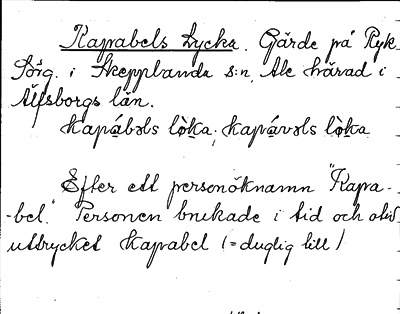 Kapabels Lycka. Gärde på Ryk
i Skepplanda s:n, Ale härad i
Älfsborgs län.
kapábəls lòka; kapávəls lòka
Efter ett personöknamn "Kapa-
-bel." Personen brukade i tid och otid
uttrycket kapabel (= duglig till)